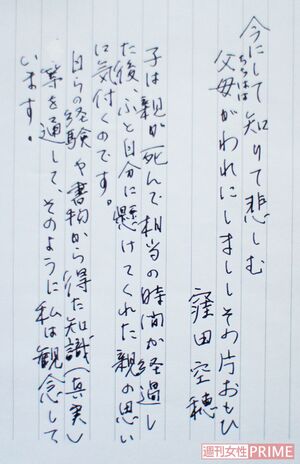 今にして知りて悲しむ
父母がわれにしまししその片おもひ
ちちはは
窪田空穂
子は親が死んで相当の時間が経過し
た後、ふと自分に懸けてくれた親の思い
に気付くのです。
自らの経験や書物から得た知識(真実)
等を通して、そのように私は観念して
います。
週刊女性PRIME